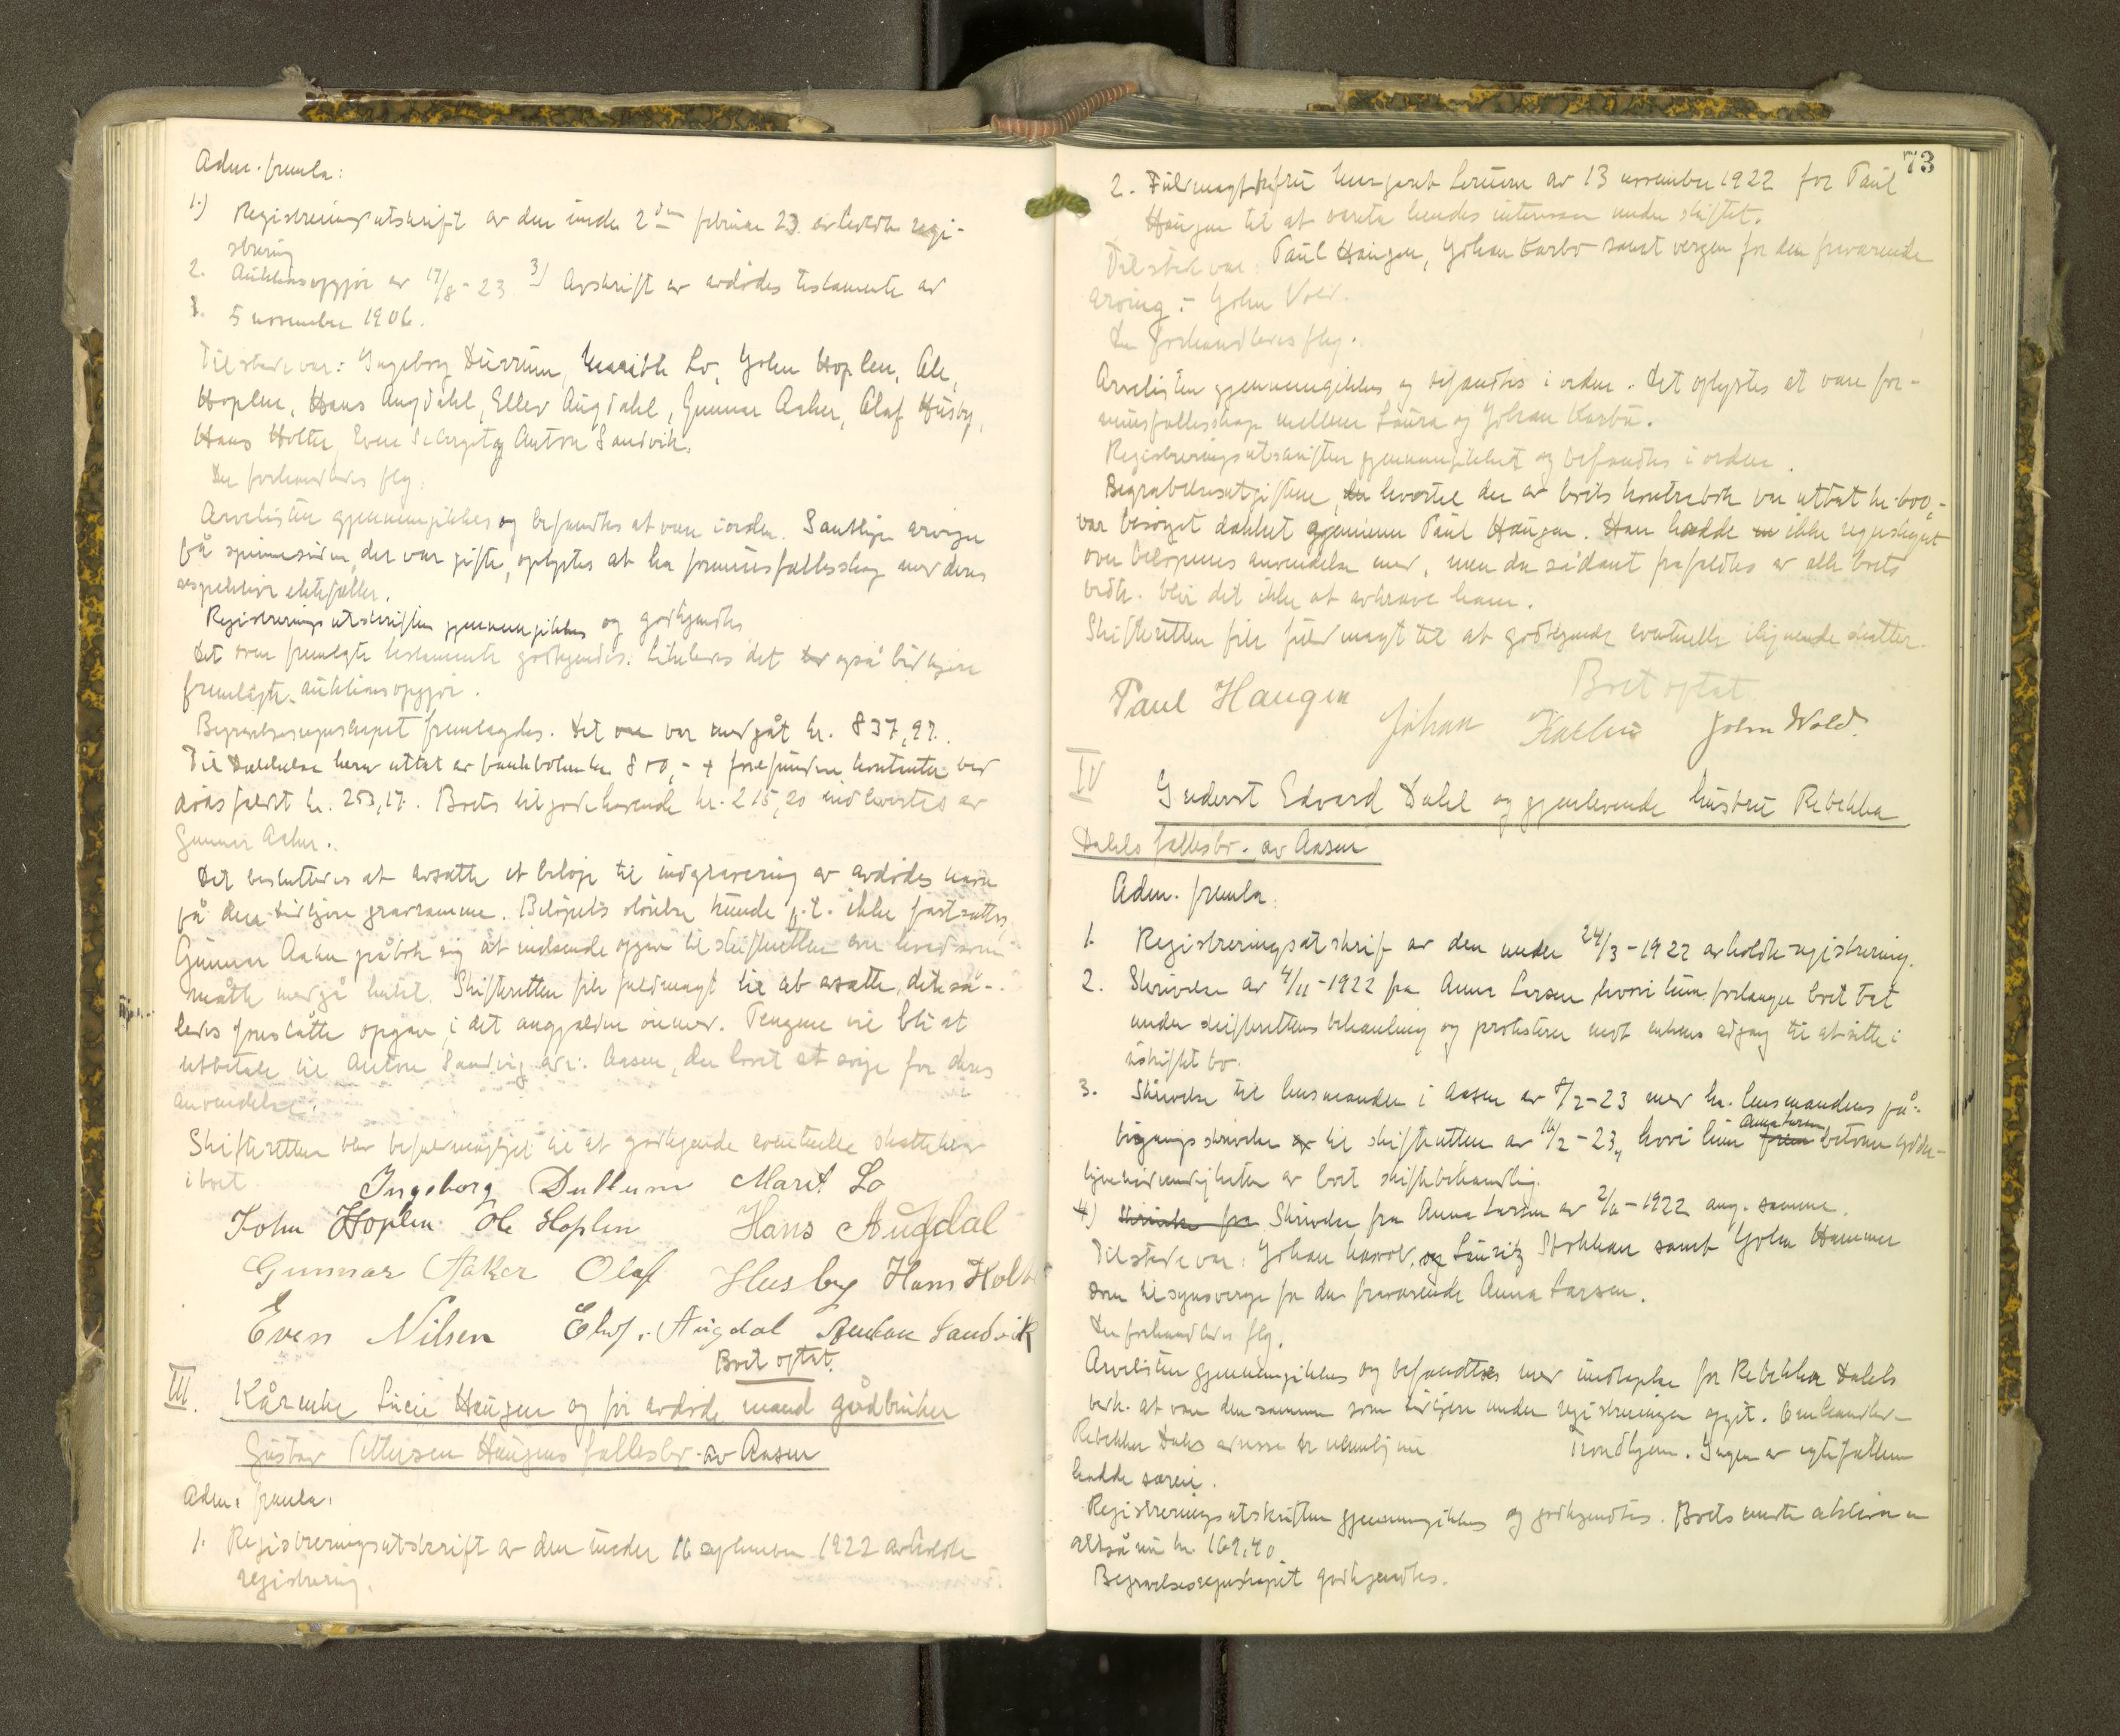 Adm. fremla:
1.) Registreringsutskrift av den under 2den februar 23 avholdte regi-
strering
2. Auktionsopgjør av 17/8-23 3) Avskrift av avdødes testamente av
3. 5 november 1906.
Tilstede var: Ingeborg Durrum, Marith Lo, John Hoplen, Ole
Hoplen, Hans Augdahl, Ellev Augdahl, Gunnar Aaker, Olaf Husby,
Hans Holte, Even og Anton Sandvik.
Der forhandledes flg.
Arvelisten gjennemgikkes og befandtes at være i orden. Samtlige arvinger
på spinnesiden, der var gifte, oplystes at ha formuesfællesskap med deres
respektive ektefæller.
Registreringsutskriften gjennemgikkes og godkjendtes
Det som fremlagte testamente godkjendtes. Likeledes det også tidligere
fremlagte auktionsopgjør.
Begravelsesregnskapet fremlagdes. Det var medgåt kr. 837,97.
Til dækkelse herav uttat av bankboken kr. 800,- + forefundne kontanter ved
dødsfaldet kr. 253,17. Boets tilgodehavende kr. 215,20 indbetaltes av
Gunnar Aaker.
Det besluttedes at avsætte et beløp til indgravering av avdødes navn
på den tidligere gravramme. Beløpets størrelse kunde p.t. ikke fastsættes,
Gunnar Aaker påtok sig at indsende opgave til skifteretten over hvad som
måtte medgå hertil. Skifteretten fik fuldmagt til at avsætte det så-
ledes foreslåtte opgave i det angjældne øiemed. Pengene vil bli at
utbetale til Anton Sandvig adr: Aasen, der lovet at sørge for deres
anvendelse.
Skifteretten blev befuldmægtiget til at godkjende eventuelle skattekrav
i boet.
Ingeborg Dullum Marit Lo
John Hoplen Ole Hoplen Hans Augdal
Gunnar Aaker Olaf Husby Hans Holte
Even Nilsen Elev. Augdal Anton Sandvik
Boet optat.
III. Kårenke Lucie Haugen og før avdøde mand gårdbruker
Gustav Pettersen Haugens fællesbo av Aasen
Adm. fremla:
1. Registreringsutskrift av den under 16 september 1922 avholdte
registrering.
73
2. Fuldmagt fra fru Margaret Lorum av 13 november 1922 for Paul
Haugen til at vareta hendes interesser under skiftet.
Tilstede var: Paul Haugen, Johan Karbø samt vergen for den fraværende
arving: - John Vold.
Der forhandledes flg.
Arvelisten gjennemgikkes og befandtes i orden. Det oplystes at være for-
muesfællesskap mellem Laura og Johan Karbø.
Registreringsutskriften gjennemgikkes og befandtes i orden.
Begravelsesutgiftene, hvortil der av boets kontrabok var uttat kr. 600,-
var besørget dækket gjennem Paul Haugen. Han hadde ikke regnskapet
over beløpenes anvendelse med, men da sådant frafaldtes av alle boets
vedk. blir det ikke at avkræve ham.
Skifteretten fik fuldmagt til at godkjende eventuelle ilignende skatter.
Boet optat
Paul Haugen Johan Karbø John Wold.
IV Inderst Edvard Dahl og gjenlevende hustru Rebekka
Dahls fællesbo. av Aasen
Adm. fremla:
1. Registreringsutskrift av den under 24/3-1922 avholdte registrering.
2. Skrivelse av 4/11-1922 fra Anna Larsen hvori hun forlanger boet tat
under skifterettens behandling og protesterer mot enkens adgang til at sitte i
uskiftet bo.
3. Skrivelse til lensmanden i Aasen av 8/2-23 med hr. lensmandens på-
tegningsskrivelse til skifteretten av 10/2-23, hvori hun Anna Larsen betoner ytter-
ligere nødvendigheten av boets skiftebehandling.
4) Skrivelse fra Skrivelse fra Anna Larsen av 2/11-1922 ang. samme.
Tilstede var: Johan og Lauritz Stokkan samt John Hammer
som tilsynsverge for den fraværende Anna Larsen.
Der forhandledes flg.
Arvelisten gjennemgikkes og befandtes med undtagelse for Rebekka Dahls
vedk. at være den samme som tidligere under registreringen opgit.
Rebekka Dahls adresse er nemlig nu Trondhjem. Ingen av egtefællene
hadde særeie.
Registreringsutskriften gjennemgikkes og godkjendtes. Boets eneste aktiva er
altså nu kr. 169,40
Begravelsesregnskapet godkjendtes.